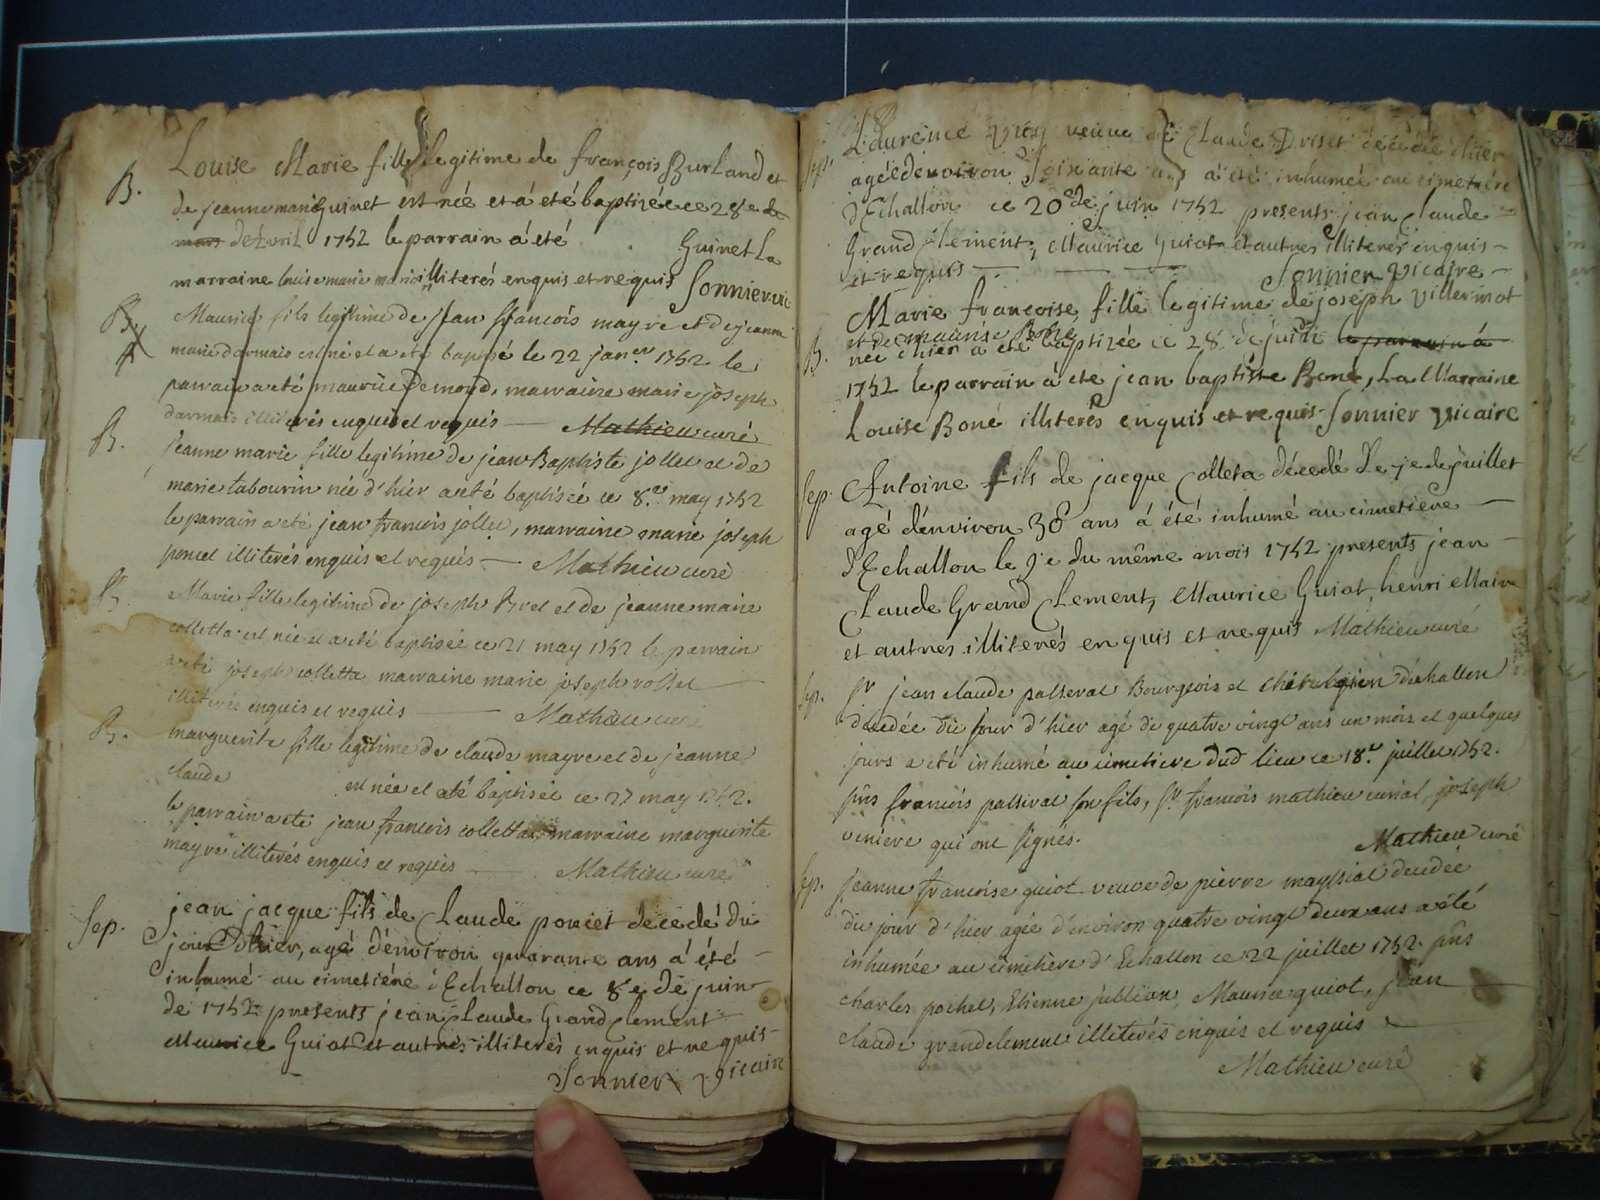 B. Louise Marie fille legitime de françois Burland et
de jeanne marie Guinet est née et á eté baptizée ce 28e de
mars d'avril 1752 le parrain á eté Guinet La
marraine louise marie illiterés enquis et requis Sonnier vic
B. Maurice fils legitime de jean francois mayre et de jeanne
marie darmais est né et a eté baptisé le 22 janer 1752 le
parrain a eté maurice Demond, marraine marie joseph
darmais illiterés enquis et requis — Mathieu curé
B. jeanne marie fille legitime de jean Baptiste jollet et de
marie tabourin née d'hier a eté baptisée ce 8e may 1752
le parrain a eté jean francois jollet, marraine marie joseph
poncet illiterés enquis et requis — Mathieu curé
B. Marie fille legitime de joseph Bret et de jeanne marie
colletta est née et a eté baptisée ce 21 may 1752 le parrain
a eté joseph colletta marraine marie joseph rosset
illiterés enquis et requis — Mathieu curé
B. marguerite fille legitime de claude mayre et de jeanne
claude est née et eté baptisée ce 27 may 1752.
le parrain a eté jean francois colletta marraine marguerite
mayre illiterés enquis et requis — Mathieu curé
Sep. jean jacque fils de Claude poncet decedé du
jour d'hier, agé d'énviron quarante ans á été
inhumé au cimetiére d'Echallon ce 8e de juin
de 1752 presents jean Claude Grand Clement
Maurice Guiot et autres illiterés enquis et requis
Sonnier vicaire
Sep. Laurence veuve de Claude Driset décédée d'hier
agéé d'énviron Soixante ans á été inhumée au cimetiére
d'Echallon ce 20e de juin 1752 presents jean Claude
Grand Clement, Maurice Guiot et autres illiterés enquis
et requis — Sonnier vicaire
Marie francoise fille legitime de joseph Villermot
et de maurise Boné
B. née d'hier á eté baptizée ce 28 de juin le parrain á
1752 le parrain á eté jean baptiste Boné, La Marraine
Louise Boné illiterés enquis et requis Sonnier vicaire
Sep. Antoine fils de jacque Colleta décedé le 7e de juillet
agé d'énviron 30 ans á été inhumé au cimetiere
d'Echallon le 9e du même mois 1752 presents jean
Claude Grand Clement, Maurice Guiot, henri Maire
et autres illiterés enquis et requis Mathieu curé
Sep. Sr jean claude passerat Bourgeois et chirurgien d'échallon
decedée du jour d'hier agé de quatre vingt ans un mois et quelques
jours a eté inhumé au cimetiere dud lieu ce 18e juillet 1752.
pñs francois passerat son fils, Sr francois mathieu curial, joseph
veniere qui ont signés.
Mathieu curé
Sep. jeanne francoise guiot veuve de pierre mayssiat decedée
du jour d'hier agée d'énviron quatre vingt deux ans a eté
inhumée au cimetiere d'Echallon ce 22 juillet 1752. pñs
charles pochet, Etienne jullian, Maurice guiot, jean
claude grandclement illiterés enquis et requis
Mathieu curé